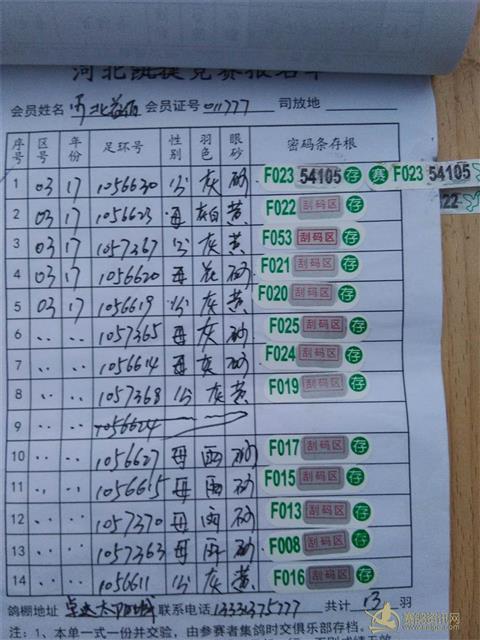 河北凯捷竞赛报名单
会员姓名 河北 会员证号 011777 司放地
序号 区号 年份 足环号 性别 羽色 眼砂 密码条存根
1 03 17 1056630 公 灰 砂 F023 54105 存 赛 F023 54105
2 03 17 1056623 母 灰白 黄 F022 刮码区 存 22
3 03 17 1057367 公 灰 黄 F053 刮码区 存
4 03 17 1056620 母 花 砂 F021 刮码区 存
5 03 17 1056619 公 灰 黄 F020 刮码区 存
6 .. .. 1057365 母 灰 砂 F025 刮码区 存
7 .. .. 1056614 母 灰 砂 F024 刮码区 存
8 .. .. 1057368 公 灰 黄 F019 刮码区 存
9 .. .. 1056624
10 .. .. 1056627 母 雨 砂 F017 刮码区 存
11 .. .. 1056615 母 雨 砂 F015 刮码区 存
12 .. .. 1057370 母 雨 砂 F013 刮码区 存
13 .. .. 1057363 母 雨 砂 F008 刮码区 存
14 .. .. 1056611 公 灰 黄 F016 刮码区 存
鸽棚地址 联系电话 13331375777 共计 13 羽
注：1、本单一式一份并交验，由参赛者集鸽时交俱乐部存档。